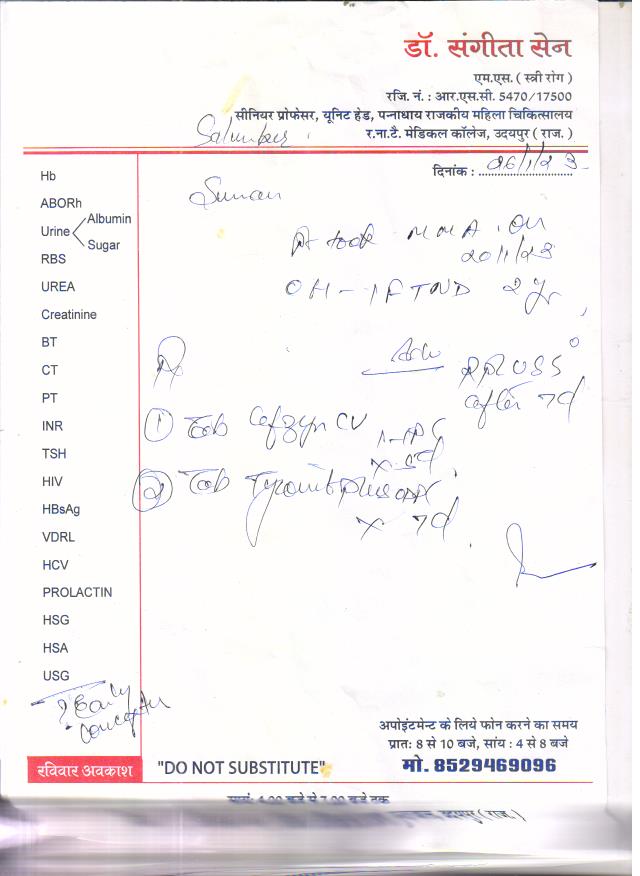 डॉ. संगीता सेन
एम.एस. ( स्त्री रोग )
रजि. नं. : आर.एस.सी. 5470/17500
सीनियर प्रोफेसर, यूनिट हेड, पन्नाधाय राजकीय महिला चिकित्सालय
र.ना.टै. मेडिकल कॉलेज, उदयपुर ( राज. )
Salumber
दिनांक : 26/1/23
Suman
Pt took MMA on
20/1/23
OH - 1 FTND 2 yr
Adv
USS
after 7d
Hb
ABORh
Urine Albumin
Sugar
RBS
UREA
Creatinine
BT
CT
PT
INR
TSH
HIV
HBsAg
VDRL
HCV
PROLACTIN
HSG
HSA
USG
Rx
① Tab Cefzyn CV
x 5d
② Tab
x 7d
? Early
रविवार अवकाश
"DO NOT SUBSTITUTE"
अपोइंटमेन्ट के लिये फोन करने का समय
प्रात: 8 से 10 बजे, सांय : 4 से 8 बजे
मो. 8529469096
उदयपुर ( राज. )